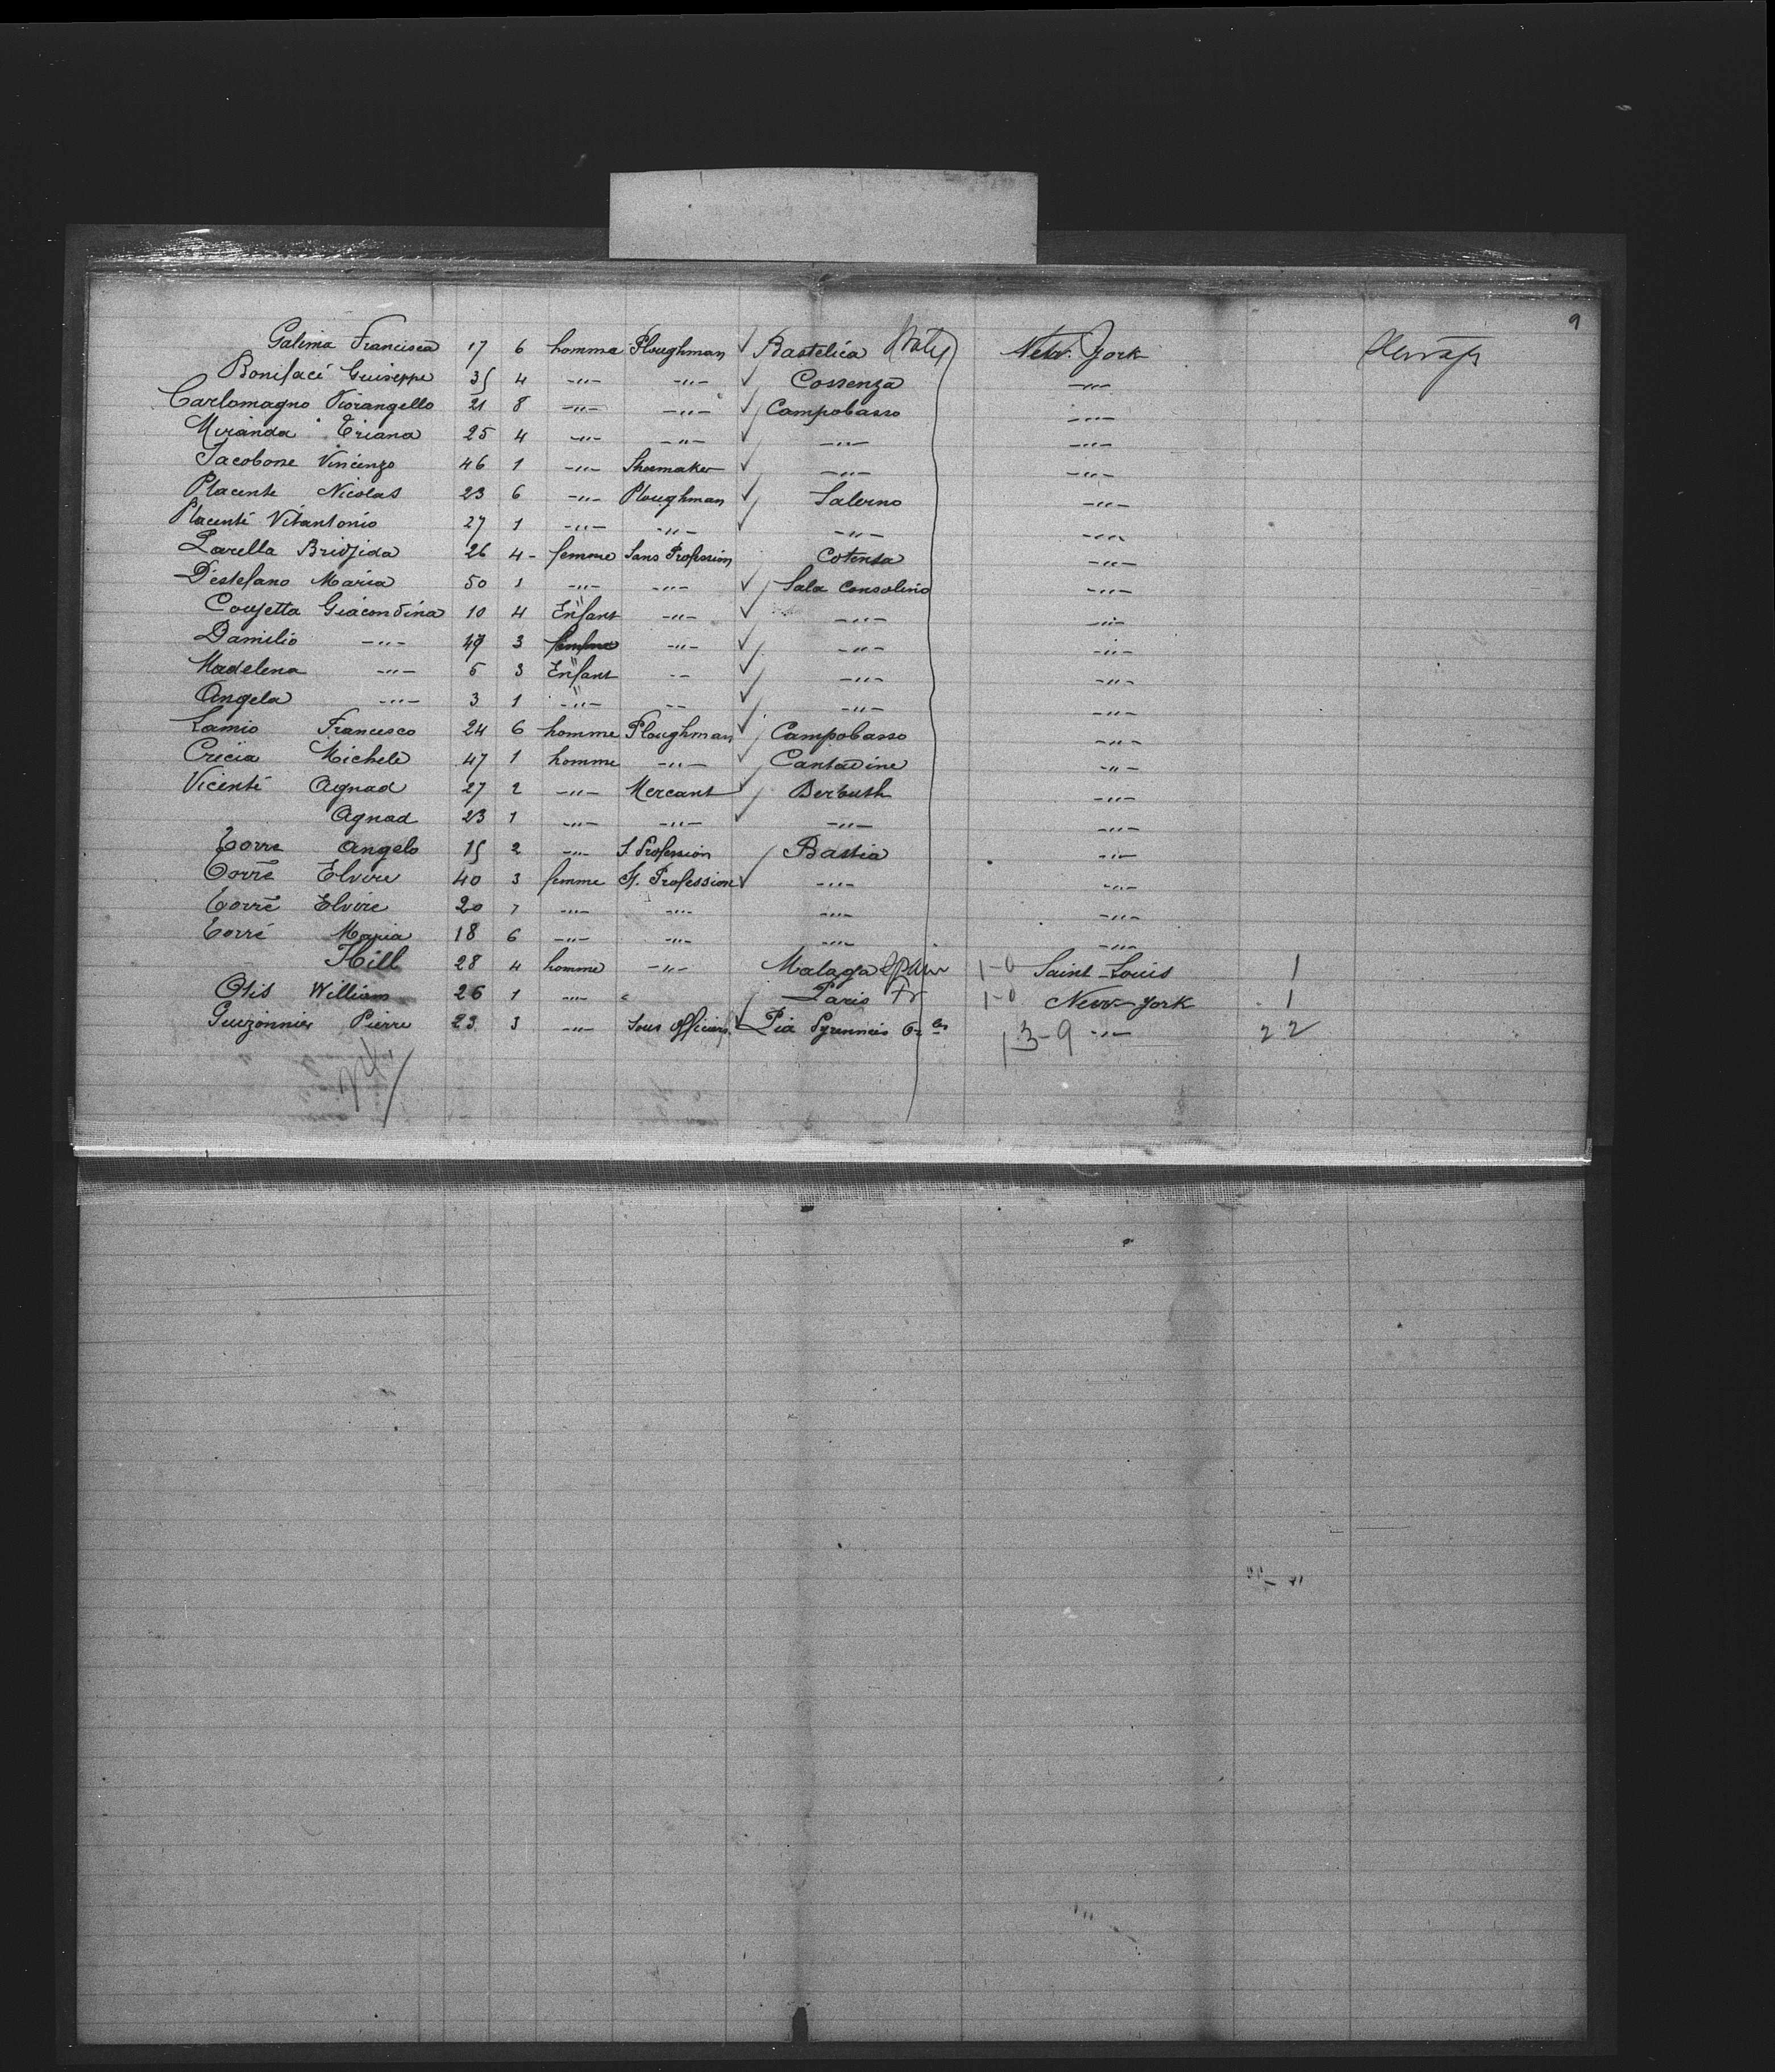 9
Galinia Francisca 17 6 homme Ploughman ✓ Bastelica Italy New-York Steerage
Bonifaci Guiseppe 35 4 -"- -"- ✓ Cossenza -"-
Carlomagno Fiorangello 21 8 -"- -"- ✓ Campobasso -"-
Miranda Eriana 25 4 -"- -"- ✓ -"- -"-
Jacobone Vincenzo 46 1 -"- Shoemaker ✓ -"- -"-
Placente Nicolas 23 6 -"- Ploughman ✓ Salerno -"-
Placenté Vitantonio 27 1 -"- -"- ✓ -"- -"-
Larella Bridjida 26 4 - femme Sans Profession Cotensa -"-
Destefano Maria 50 1 -"- -"- ✓ Sala Consolino -"-
Coujetta Giacondina 10 4 Enfant -"- ✓ -"- -"-
Damilio -"- 3 femme -"- ✓ -"- -"-
Madelena -"- 5 3 Enfant -- ✓ -"- -"-
Angela -"- 3 1 -"- -- ✓ -"- -"-
Lamio Francesco 24 6 homme Ploughman ✓ Campobasso -"-
Crecia Michele 47 1 homme -"- ✓ Cantadine -"-
Vicenté Agnad 27 2 -"- Mercant ✓ Berbuth -"-
Agnad 23 1 -"- -"- ✓ -"- -"-
Torre Angelo 15 2 -"- S. Profession Bastia -"-
Torré Elvire 40 3 femme S. Profession ✓ -"- -"-
Torré Elvire 20 7 -"- -"- -"- -"-
Torré Maria 18 6 -"- -"- -"- -"-
Hill 28 4 homme -"- Malaga Spain 1-0 Saint-Louis 1
Otis William 26 1 -"- " Paris Fr 1-0 New-York 1
Guizonnier Pierre 23 3 -"- Sous officiers ✓ Pia Pyrennées Or les 13-9 -"- 22